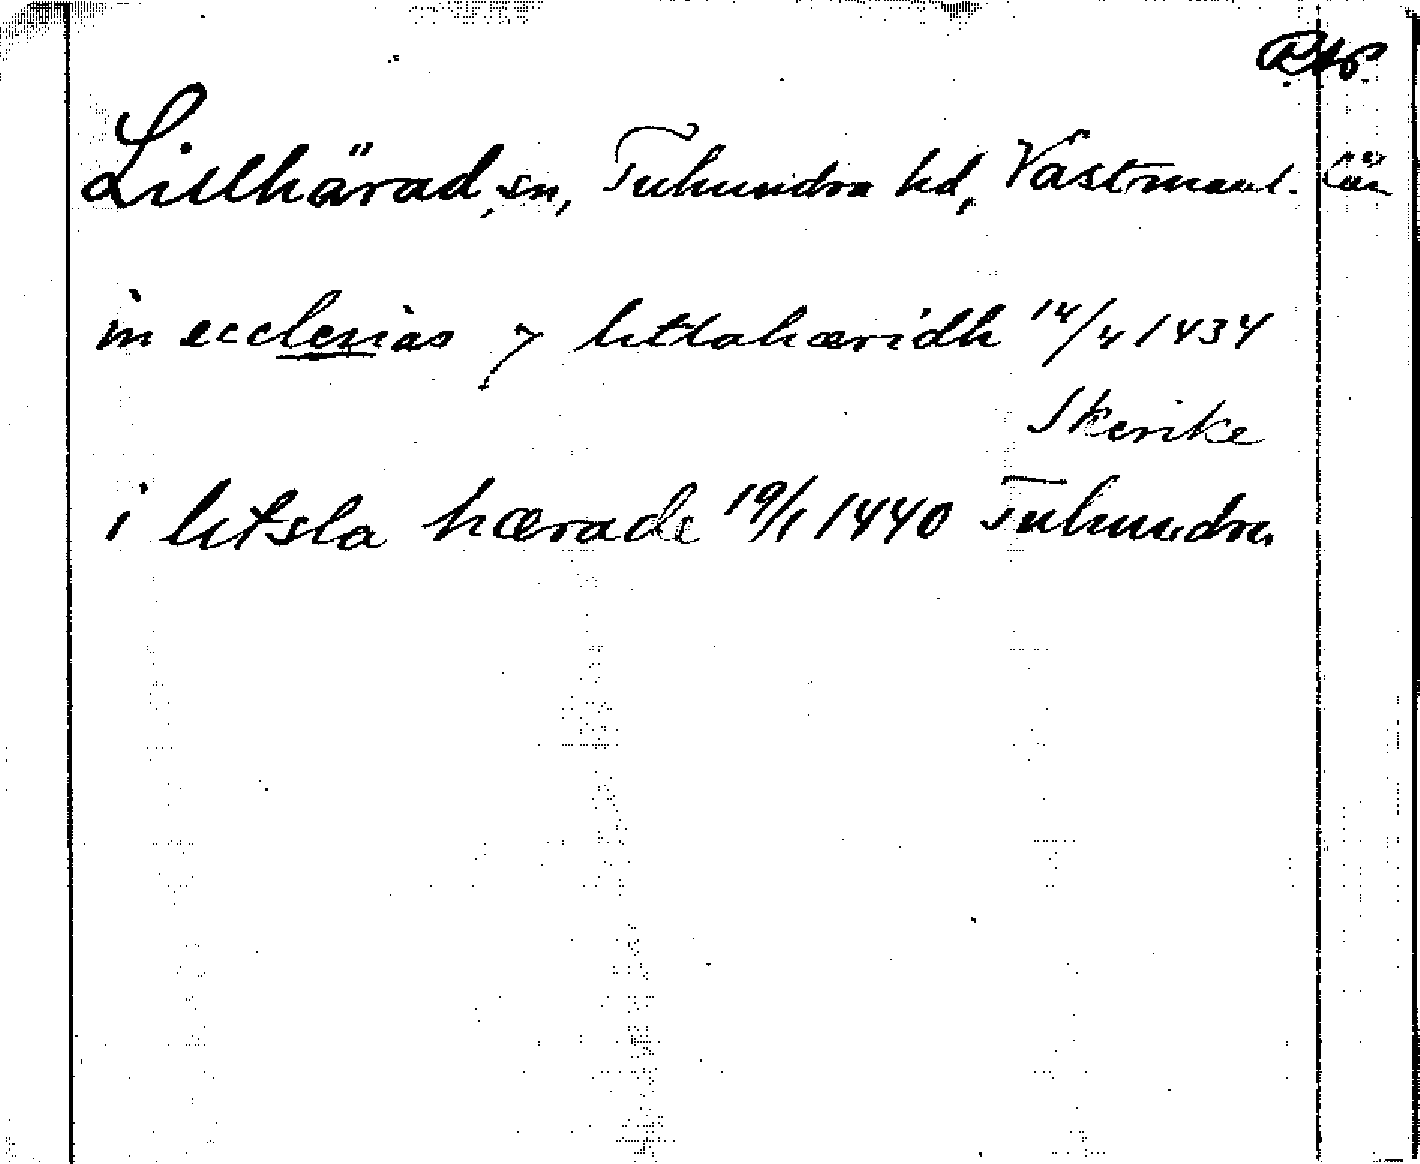 Lillhärad, sn, Tuhundra hd, Västmanl. län
in ecclesias j littlahæridh 14/4 1434
Skerike
i litsla hærade 19/1 1440 Tuhundra